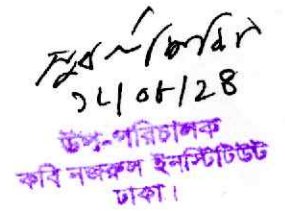 ১৮/০৮/২৪
উপ-পরিচালক
কবি নজরুল ইনস্টিটিউট
ঢাকা।